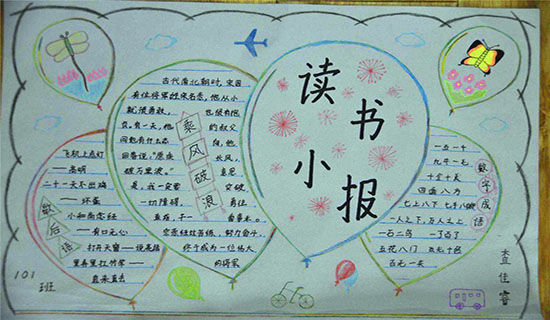 读书小报
古代南北朝时,宋国
有位将军姓宗名悫,他从小
就很勇敢, 也很有抱
负,有一天,他 的叔父
问他有什么志 向,他
回答说:“愿乘 长风,
破万里浪。” 意思
是,我一定要 突破
一切障碍, 勇往
直前,干一 番事业。
宗悫经过苦练,努力奋斗,
终于成为一位伟大
的将军
乘风破浪
飞机上点灯
——高明
二十一天不出鸡
——坏蛋
小和尚念经
——有口无心
打开天窗——说亮话
里弄里拉竹竿——
直来直去
歇后语
一五一十
九牛一毛
十全十美
四面八方
七上八下 七手八脚
一人之下,万人之上
一石二鸟 一了百了
五花八门 五光十色
百无一失
数字成语
101
班
查佳睿